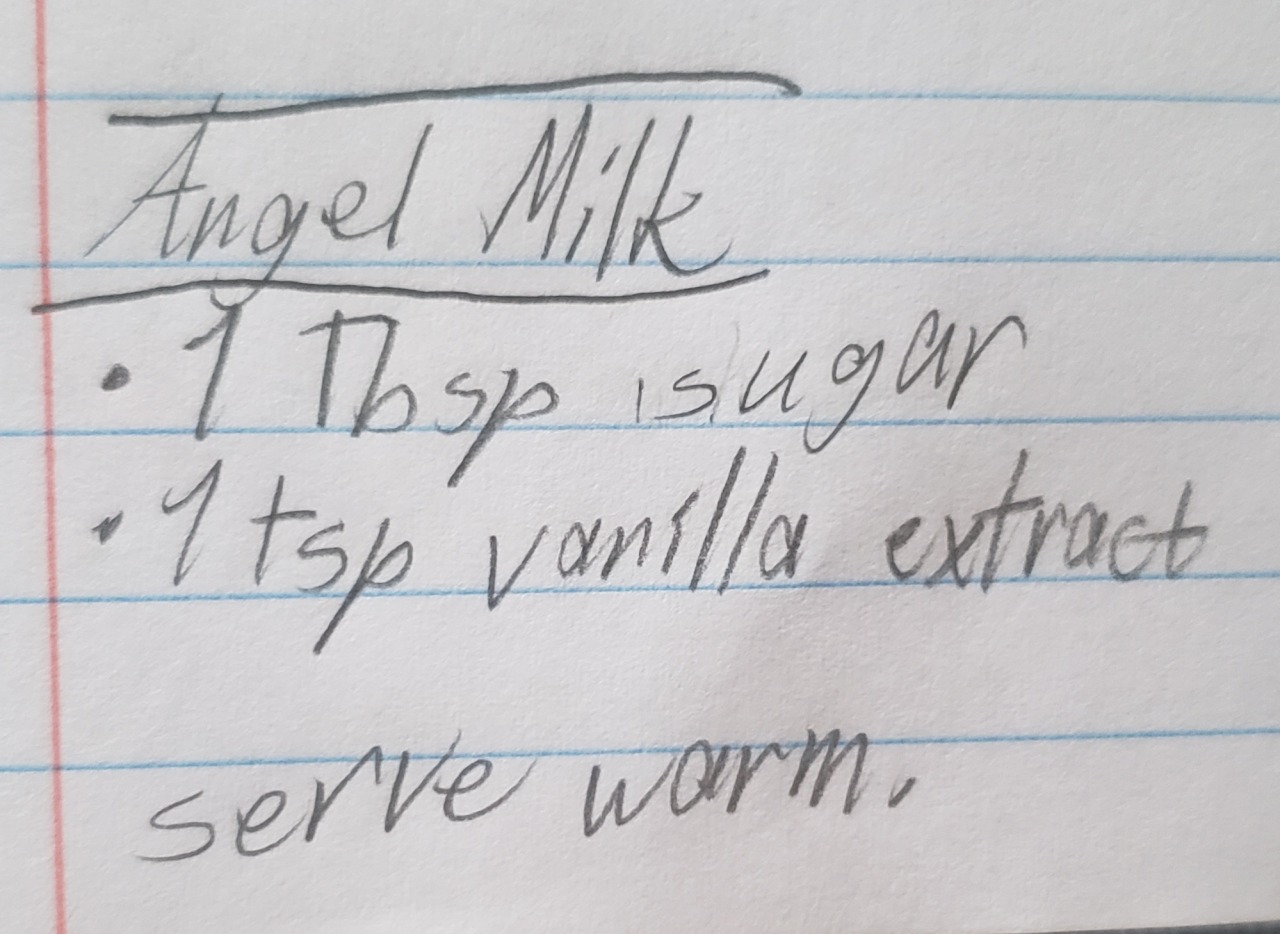 Angel Milk
• 1 Tbsp sugar
• 1 tsp vanilla extract
serve warm.